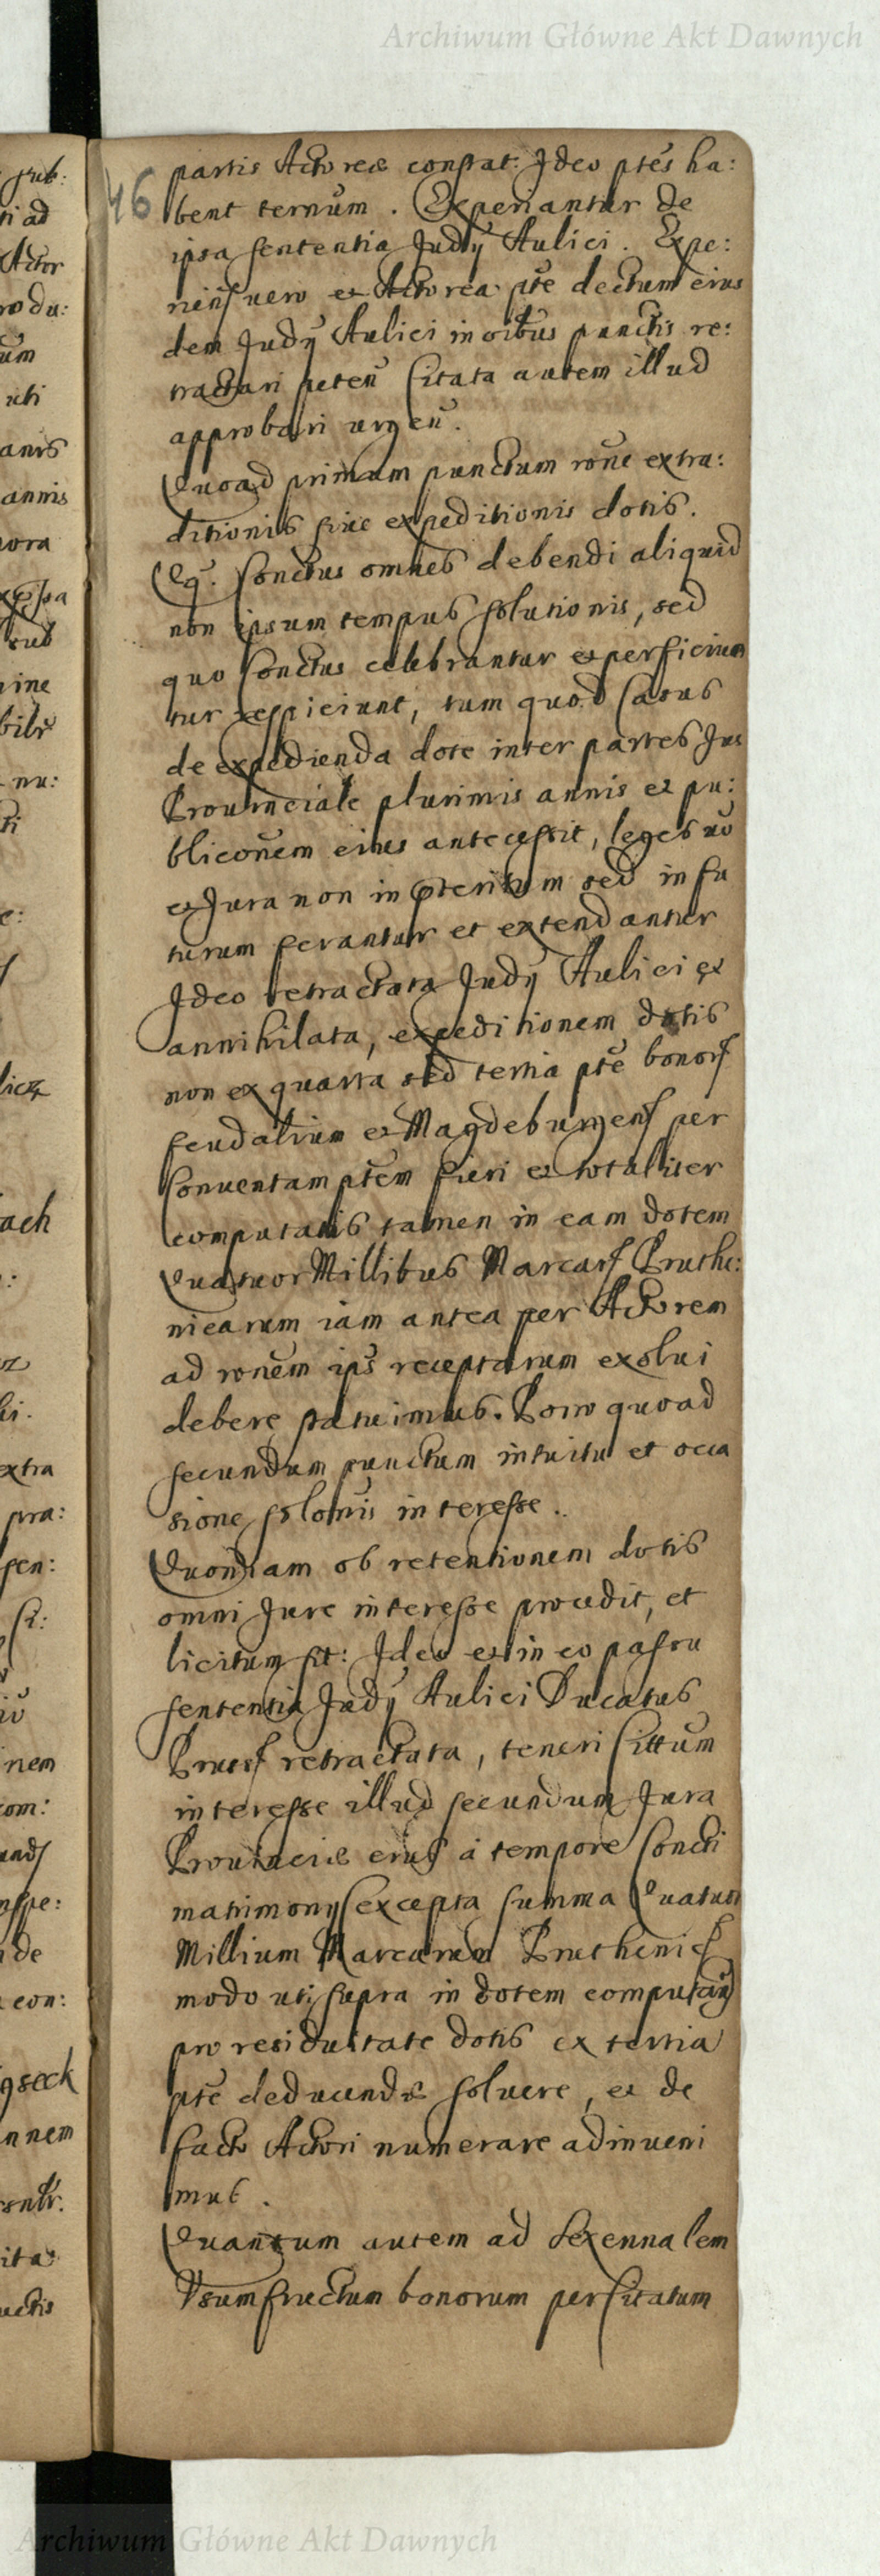 Archiwum Główne Akt Dawnych
46
partis Actoreæ constat. Ideo ptēs ha:
bent ternūm. Experiantur de
ipsa sententia Judÿ Aulici. Expe:
et Actorea ptē decītum eius
dem Judÿ Aulici in oībus punctis re:
tractari peteñ Citata autem illud
approbari urgeñ.
Quoad primum punctum rōne extra:
ditionis siue expeditionis dotis.
Eq. Conctus omnes debendi aliquid
non ipsum tempus solutionis, sed
quo Conctus celebrantur et perficiun
tur respiciunt, tum quod Casus
de expedienda dote inter partes Jus
Prouinciale plurimis annis et pu:
bliconēm eius antecessit, leges uō
et Jura non in pteritum sed in fu
turum ferantur et extendantur
Ideo retractata Judÿ Aulici et
annihilata, expeditionem dotis
non ex quarta sed tertia ptē bonor
feudalium et Magdeburgens per
Conuentam ptēm fieri et totaliter
computatis tamen in eam dotem
Quatuor Millibus Marcar Pruthe:
nicarum iam antea per Actorem
ad ronēm ips receptarum exolui
debere statuimus. Porro quoad
secundum punctum intuitu et occa
sione solonīs interesse.
Quoniam ob retentionem dotis
omni Jure interesse procedit, et
licitum sit: Ideo et in eo passu
sententia Judÿ Aulici Ducatus
Pruss retractata, teneri Cittum
interesse illud secundum Jura
Prouinciæ eius à tempore Concti
matrimonÿ excepta summa Quatuor
Millium Marcarum Pruthenic
modo uti supra in dotem computañd
pro residuitate dotis ex tertia
ptē deducendæ soluere, et de
facto Actori numerare adinueni
mus.
Quantum autem ad sexennalem
Vsumfructum bonorum per Citatum
Archiwum Główne Akt Dawnych